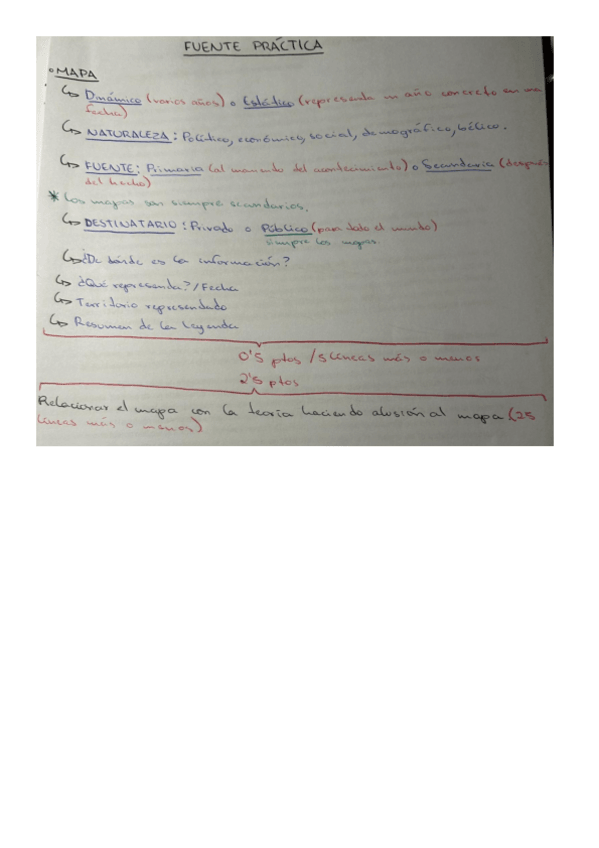 FUENTE PRÁCTICA
MAPA
↳ Dinámico (varios años) o Estático (representa un año concreto en una
fecha)
↳ NATURALEZA: Político, económico, social, demográfico, bélico.
↳ FUENTE: Primaria (al momento del acontecimiento) o Secundaria (después
del hecho)
* Los mapas son siempre secundarios.
↳ DESTINATARIO: Privado o Público (para todo el mundo)
siempre los mapas
↳ ¿De dónde es la información?
↳ ¿Qué representa? / Fecha
↳ Territorio representado
↳ Resumen de la leyenda
0'5 ptos / 5 líneas más o menos
2'5 ptos
Relacionar el mapa con la teoría haciendo alusión al mapa (25
líneas más o menos)